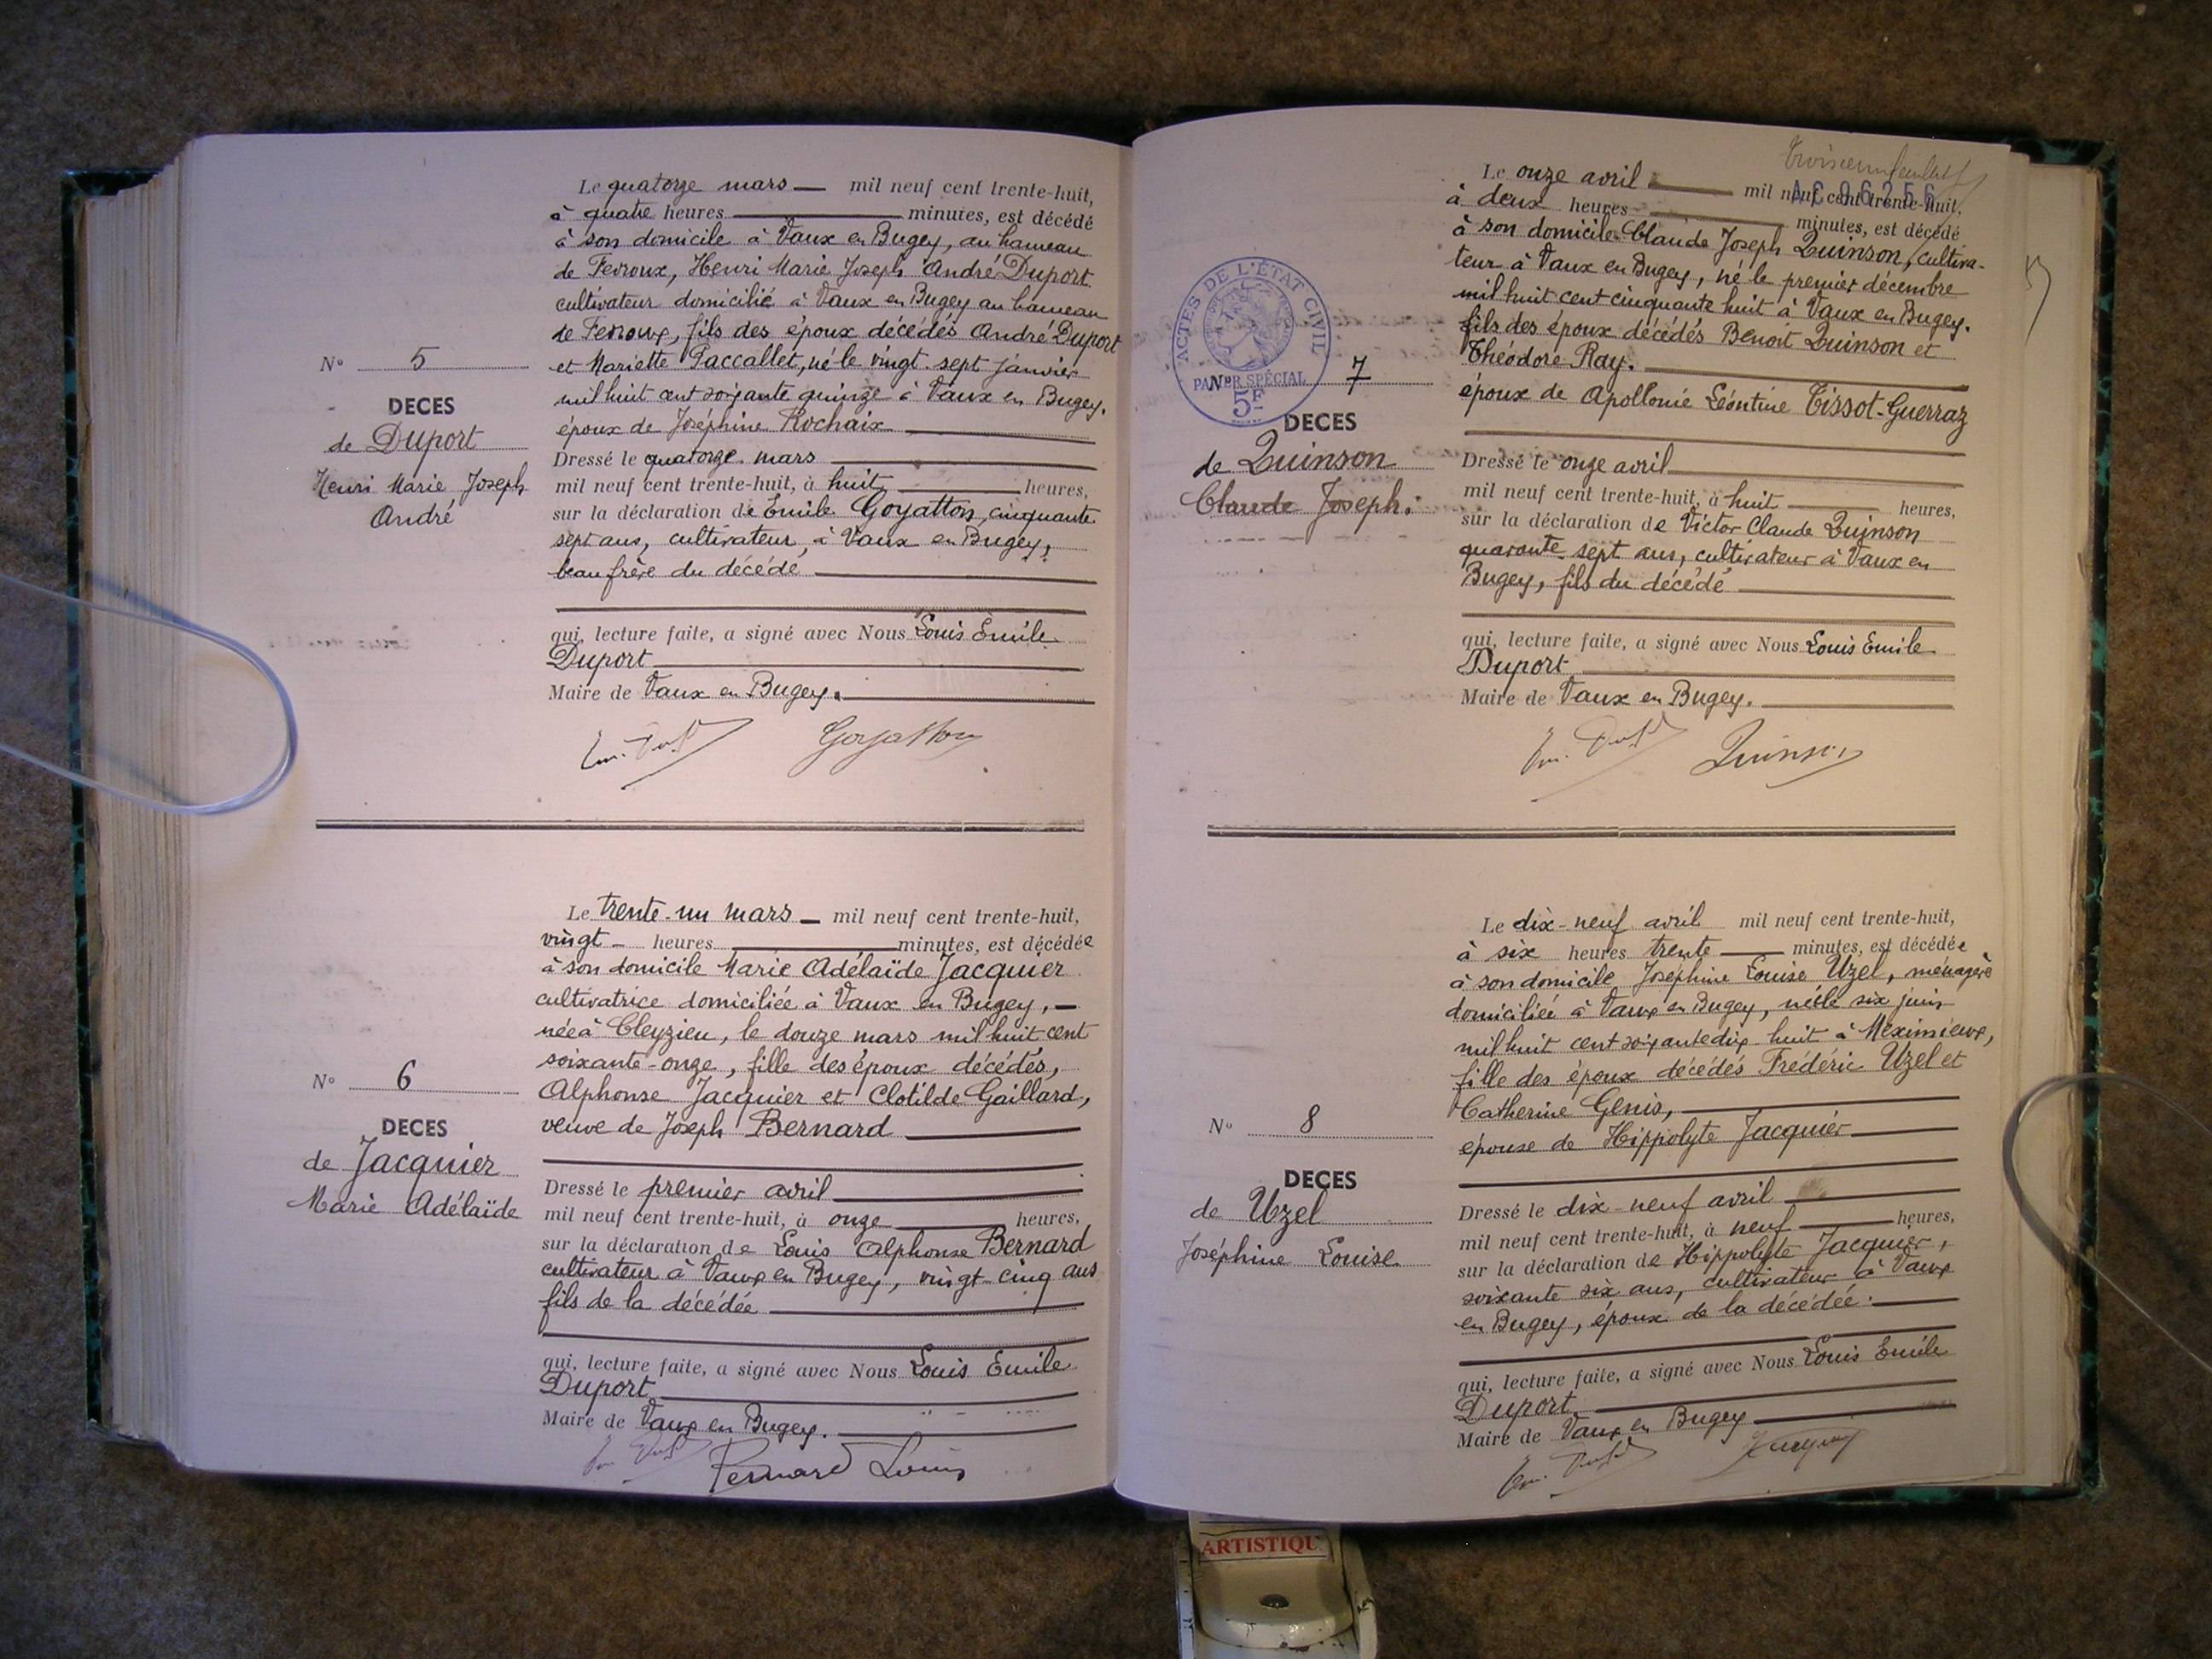 Le quatorze mars mil neuf cent trente-huit,
à quatre heures minutes, est décédé
à son domicile à Vaux en Bugey, au hameau
de Fevroux, Henri Marie Joseph André Duport
cultivateur domicilié à Vaux en Bugey au hameau
de Fevroux, fils des époux décédés André Duport
et Mariette Paccallet, né le vingt-sept janvier
mil huit cent soixante quinze à Vaux en Bugey.
époux de Joséphine Rochaix
N° 5
DECES
de Duport
Henri Marie Joseph
André
Dressé le quatorze mars
mil neuf cent trente-huit, à huit heures,
sur la déclaration de Emile Goyatton, cinquante
sept ans, cultivateur, à Vaux en Bugey,
beau frère du décédé
qui, lecture faite, a signé avec Nous Louis Emile
Duport
Maire de Vaux en Bugey.
Goyatton
Le trente-un mars mil neuf cent trente-huit,
vingt heures minutes, est décédée
à son domicile Marie Adélaïde Jacquier
cultivatrice domiciliée à Vaux en Bugey,
née à Cleyzieu, le douze mars mil huit cent
soixante-onze, fille des époux décédés,
Alphonse Jacquier et Clotilde Gaillard,
veuve de Joseph Bernard
N° 6
DECES
de Jacquier
Marie Adélaïde
Dressé le premier avril
mil neuf cent trente-huit, à onze heures,
sur la déclaration de Louis Alphonse Bernard
cultivateur à Vaux en Bugey, vingt-cinq ans
fils de la décédée
qui, lecture faite, a signé avec Nous Louis Emile
Duport
Maire de Vaux en Bugey.
Bernard Louis
Le onze avril mil neuf cent trente-huit,
à deux heures minutes, est décédé
à son domicile Claude Joseph Quinson, cultiva-
teur à Vaux en Bugey, né le premier décembre
mil huit cent cinquante huit à Vaux en Bugey.
fils des époux décédés Benoit Quinson et
Théodore Ray.
époux de Apollonie Léontine Tissot-Guerraz
ACTES DE L'ÉTAT CIVIL
PAPIER SPÉCIAL
5F
N° 7
DECES
de Quinson
Claude Joseph.
Dressé le onze avril
mil neuf cent trente-huit, à huit heures,
sur la déclaration de Victor Claude Quinson
quarante sept ans, cultivateur à Vaux en
Bugey, fils du décédé
qui, lecture faite, a signé avec Nous Louis Emile
Duport
Maire de Vaux en Bugey.
Quinson
Le dix-neuf avril mil neuf cent trente-huit,
à six heures trente minutes, est décédée
à son domicile Joséphine Louise Uzel, ménagère
domiciliée à Vaux en Bugey, née le six juin
mil huit cent soixante dix huit à Meximieux,
fille des époux décédés Frédéric Uzel et
Catherine Genis,
épouse de Hippolyte Jacquier
N° 8
DECES
de Uzel
Joséphine Louise
Dressé le dix-neuf avril
mil neuf cent trente-huit, à neuf heures,
sur la déclaration de Hippolyte Jacquier,
soixante six ans, cultivateur à Vaux
en Bugey, époux de la décédée.
qui, lecture faite, a signé avec Nous Louis Emile
Duport.
Maire de Vaux en Bugey
ARTISTIQU